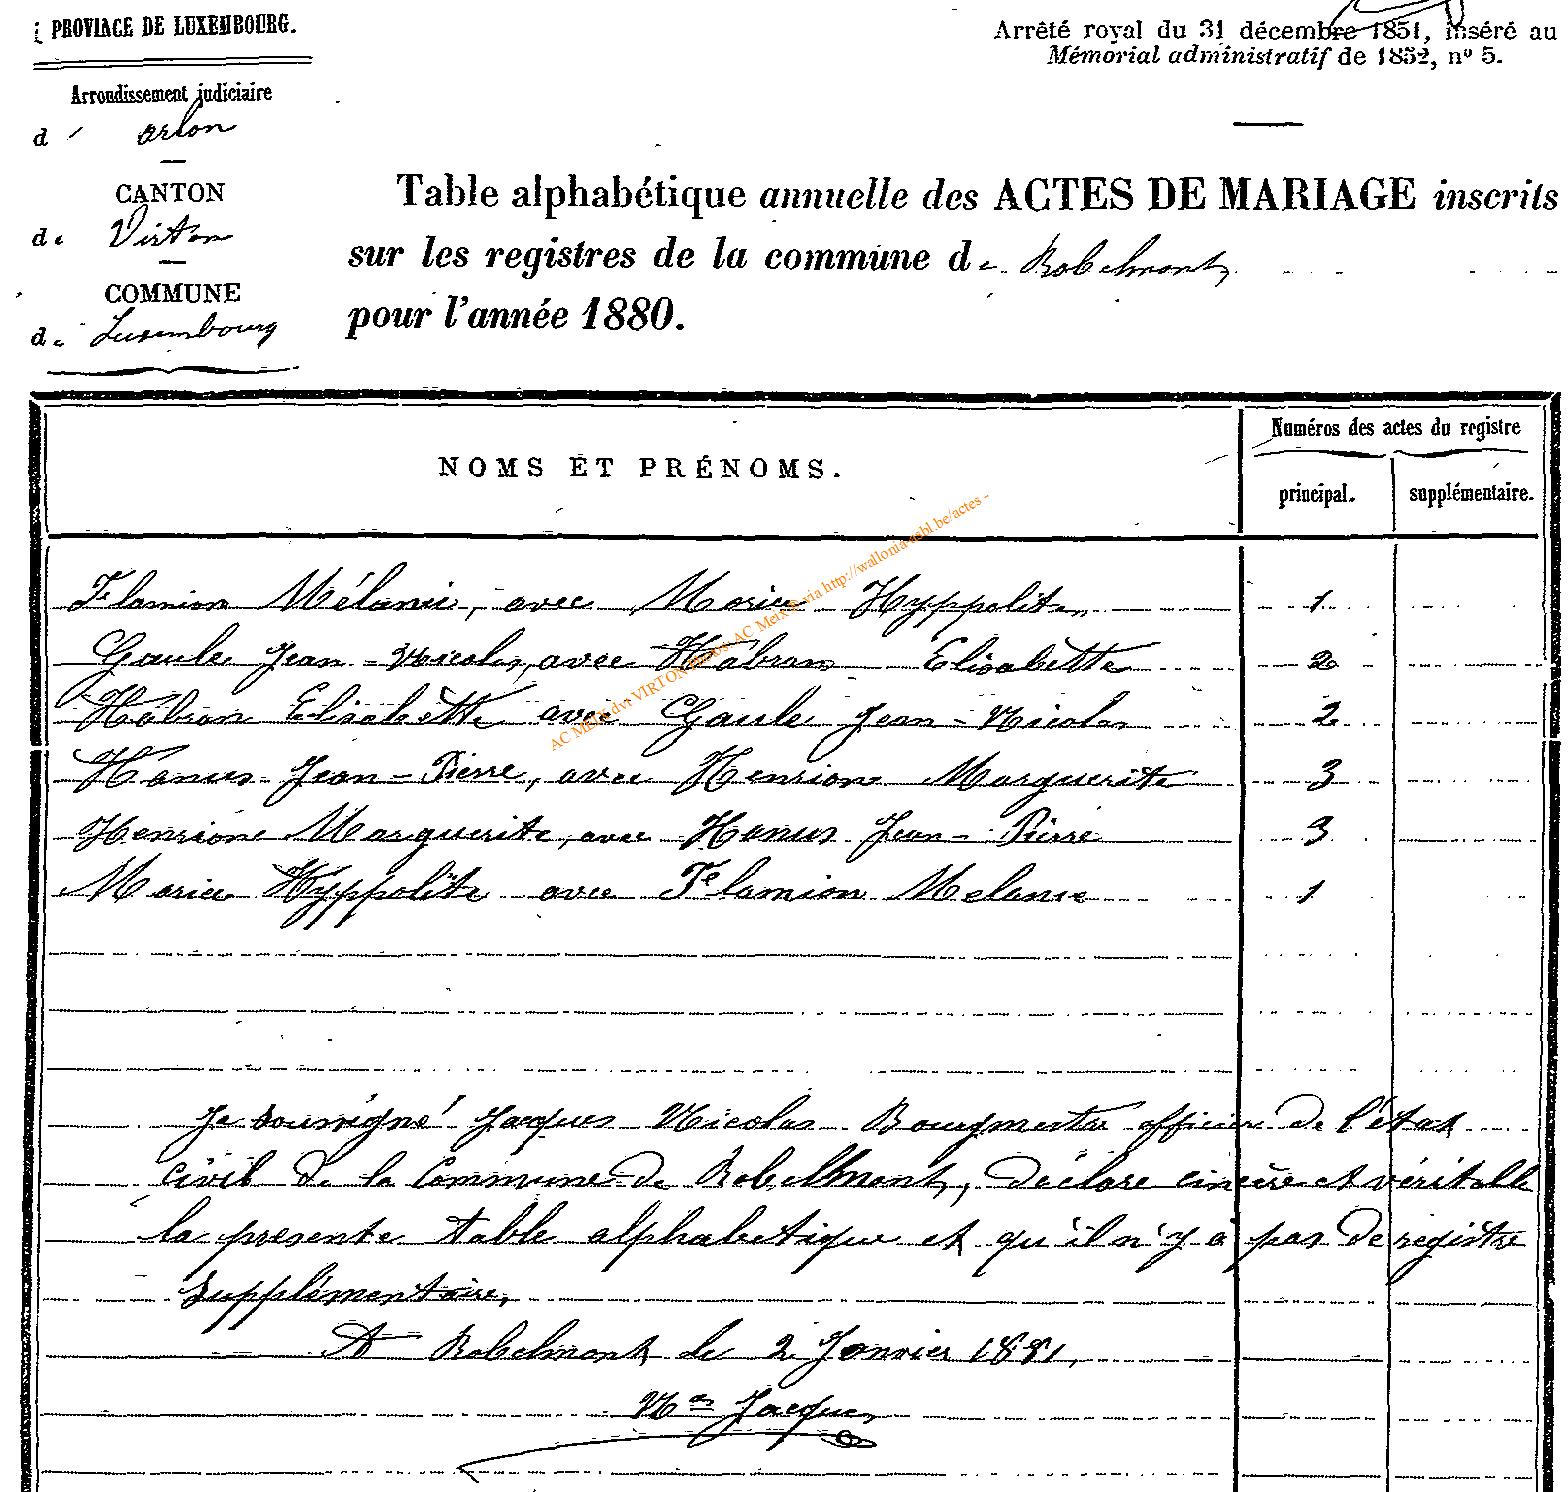 PROVINCE DE LUXEMBOURG.
Arrêté royal du 31 décembre 1851, inséré au
Mémorial administratif de 1852, nº 5.
Arrondissement judiciaire
d' Arlon
CANTON
de Virton
COMMUNE
de Luxembourg
Table alphabétique annuelle des ACTES DE MARIAGE inscrits
sur les registres de la commune de Robelmont
pour l'année 1880.
NOMS ET PRÉNOMS.
Numéros des actes du registre
principal. supplémentaire.
Flamion Mélanie, avec Marice Hyppolite 1
Gaule Jean-Nicolas, avec Habran Elisabette 2
Habran Elisabette avec Gaule Jean-Nicolas 2
Hanus Jean-Pierre, avec Henrion Marguerite 3
Henrion Marguerite, avec Hanus Jean-Pierre 3
Marice Hyppolite avec Flamion Melanie 1
AC MEIX dvt VIRTON AC Meix® via http://wallonia-asbl.be/actes -
Je soussigné Jacques Nicolas Bourgmestre officier de l'état
civil de la Commune de Robelmont, déclare cincère et véritable
la presente table alphabetique et qu'il n'y a pas de registre
supplémentaire,
A Robelmont le 2 Janvier 1881,
Nas Jacques